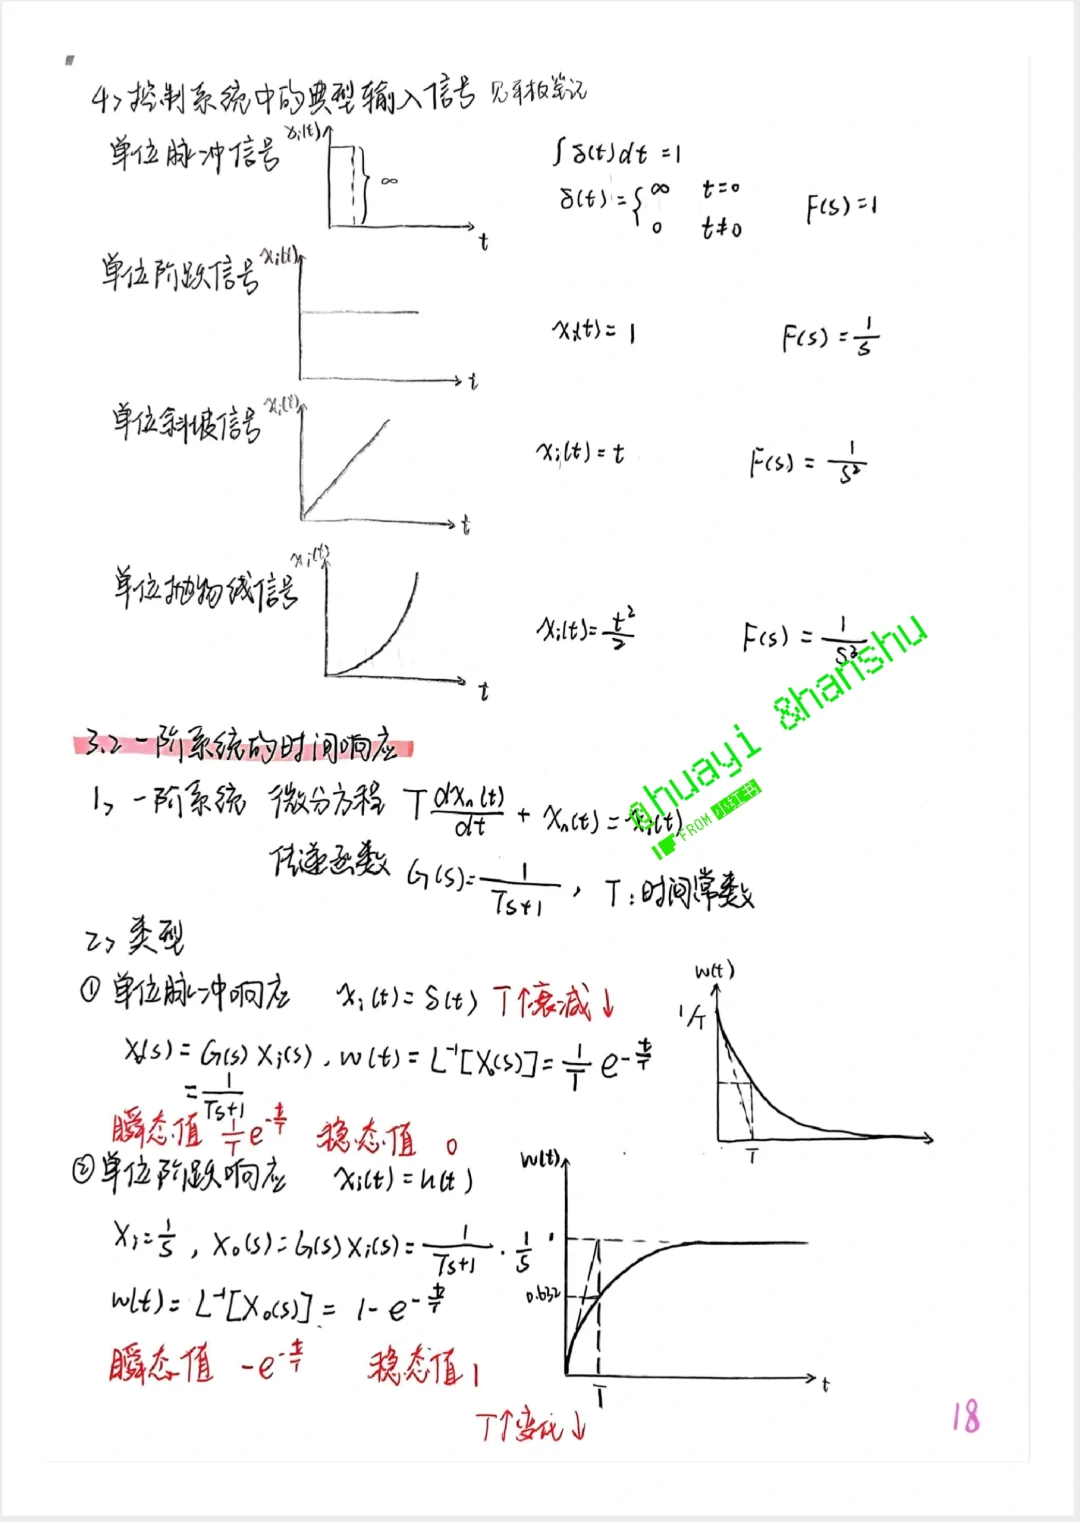 4> 控制系统中的典型输入信号 见平板笔记
单位脉冲信号 xᵢ(t) ∞ t ∫δ(t)dt=1
δ(t)={∞ t=0
0 t≠0 F(s)=1
单位阶跃信号 xᵢ(t) t xᵢ(t)=1 F(s)=1/s
单位斜坡信号 xᵢ(t) t xᵢ(t)=t F(s)=1/s²
单位抛物线信号 xᵢ(t) t xᵢ(t)=t²/2 F(s)=1/s³
@huayi &hanshu
FROM
3.2 一阶系统的时间响应
1> 一阶系统 微分方程 T dxₙ(t)/dt + xₙ(t)=xᵢ(t)
传递函数 G(s)=1/(Ts+1), T:时间常数
2> 类型
① 单位脉冲响应 xᵢ(t)=δ(t) T↑衰减↓
X₀(s)=G(s)Xᵢ(s), w(t)=L⁻¹[X₀(s)]=1/T e^(-t/T)
=1/(Ts+1)
瞬态值 1/T e^(-t/T) 稳态值 0
w(t) 1/T T
② 单位阶跃响应 xᵢ(t)=u(t)
Xᵢ=1/s, X₀(s)=G(s)Xᵢ(s)=1/(Ts+1)·1/s
w(t)=L⁻¹[X₀(s)]=1-e^(-t/T)
瞬态值 -e^(-t/T) 稳态值 1
w(t) 1 0.632 T t
T↑变化↓
18